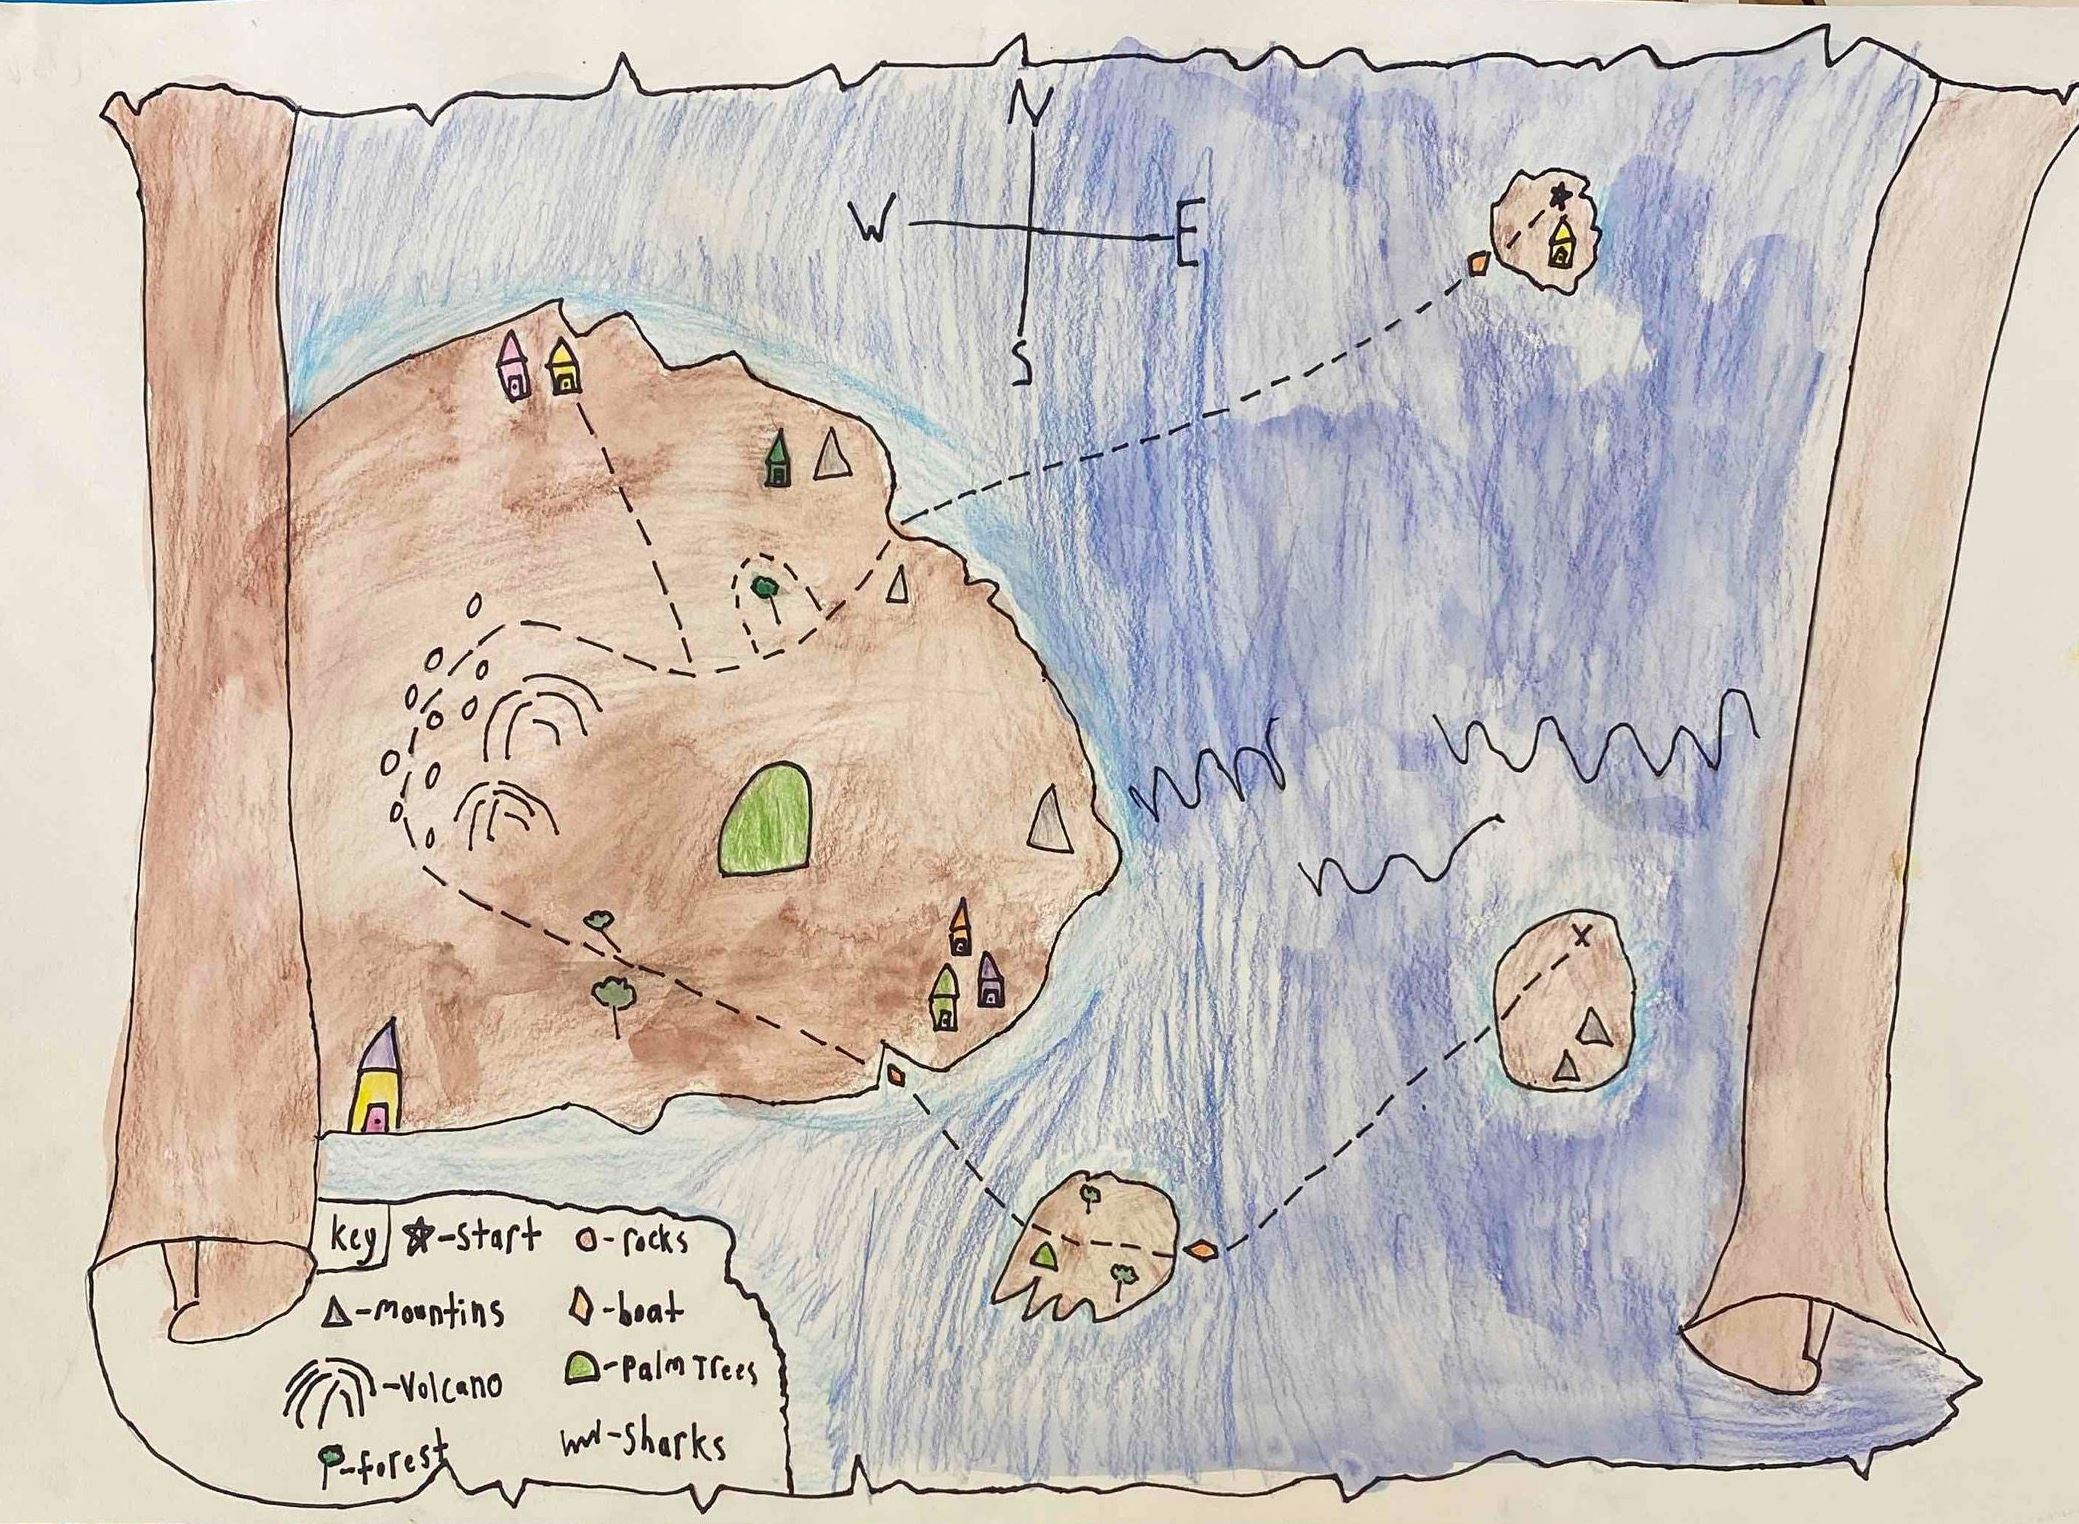 N
W E
S
x
key ★-start o-rocks
△-mountins ◇-boat
-Volcano -palm Trees
-forest -Sharks